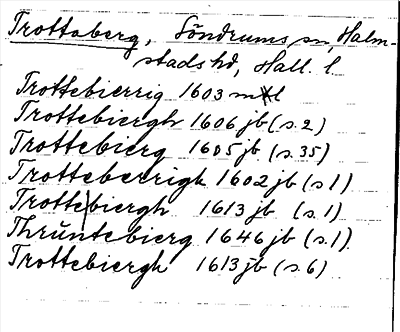 Trottaberg, Söndrums sn, Halm-
stads hd, Hall. l.
Trottebierrig 1603 mtl
Trottebiergh 1606 jb (s.2)
Trottebierg 1605 jb (s.35)
Trotteberrigh 1602 jb (s 1)
Trottebiergh 1613 jb (s.1)
Thrŭntebierg 1646 jb (s.1)
Trottebiergh 1613 jb (s.6)